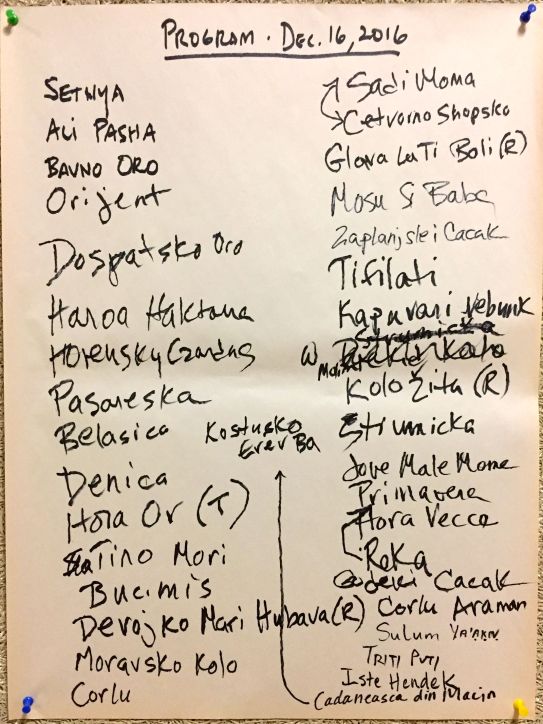 PROGRAM · DEC. 16, 2016
SETNYA
ALI PASHA
BAVNO ORO
Orijent
Dospatsko Oro
Haroa Haktana
Horensky Czardas
Pasareska
Belasica
Kostursko
Erev Ba
Denica
Hora Or (T)
Tino Mori
Bucimis
Devojko Mari Hubava (R)
Moravsko Kolo
Corlu
Sadi Moma
Cetvorno Shopsko
Glava La Ti Boli (R)
Mosu S Baba
Zaplanjski Cacak
Tifilati
Kapuvari Verbunk
Kolo Zita (R)
Strumicka
Jove Male Mome
Primavera
Hora Vecce
Reka
Cacak
Corlu Araman
Sulum
TRITI PUTI
Iste Hendek
Cadaneasca din Macin